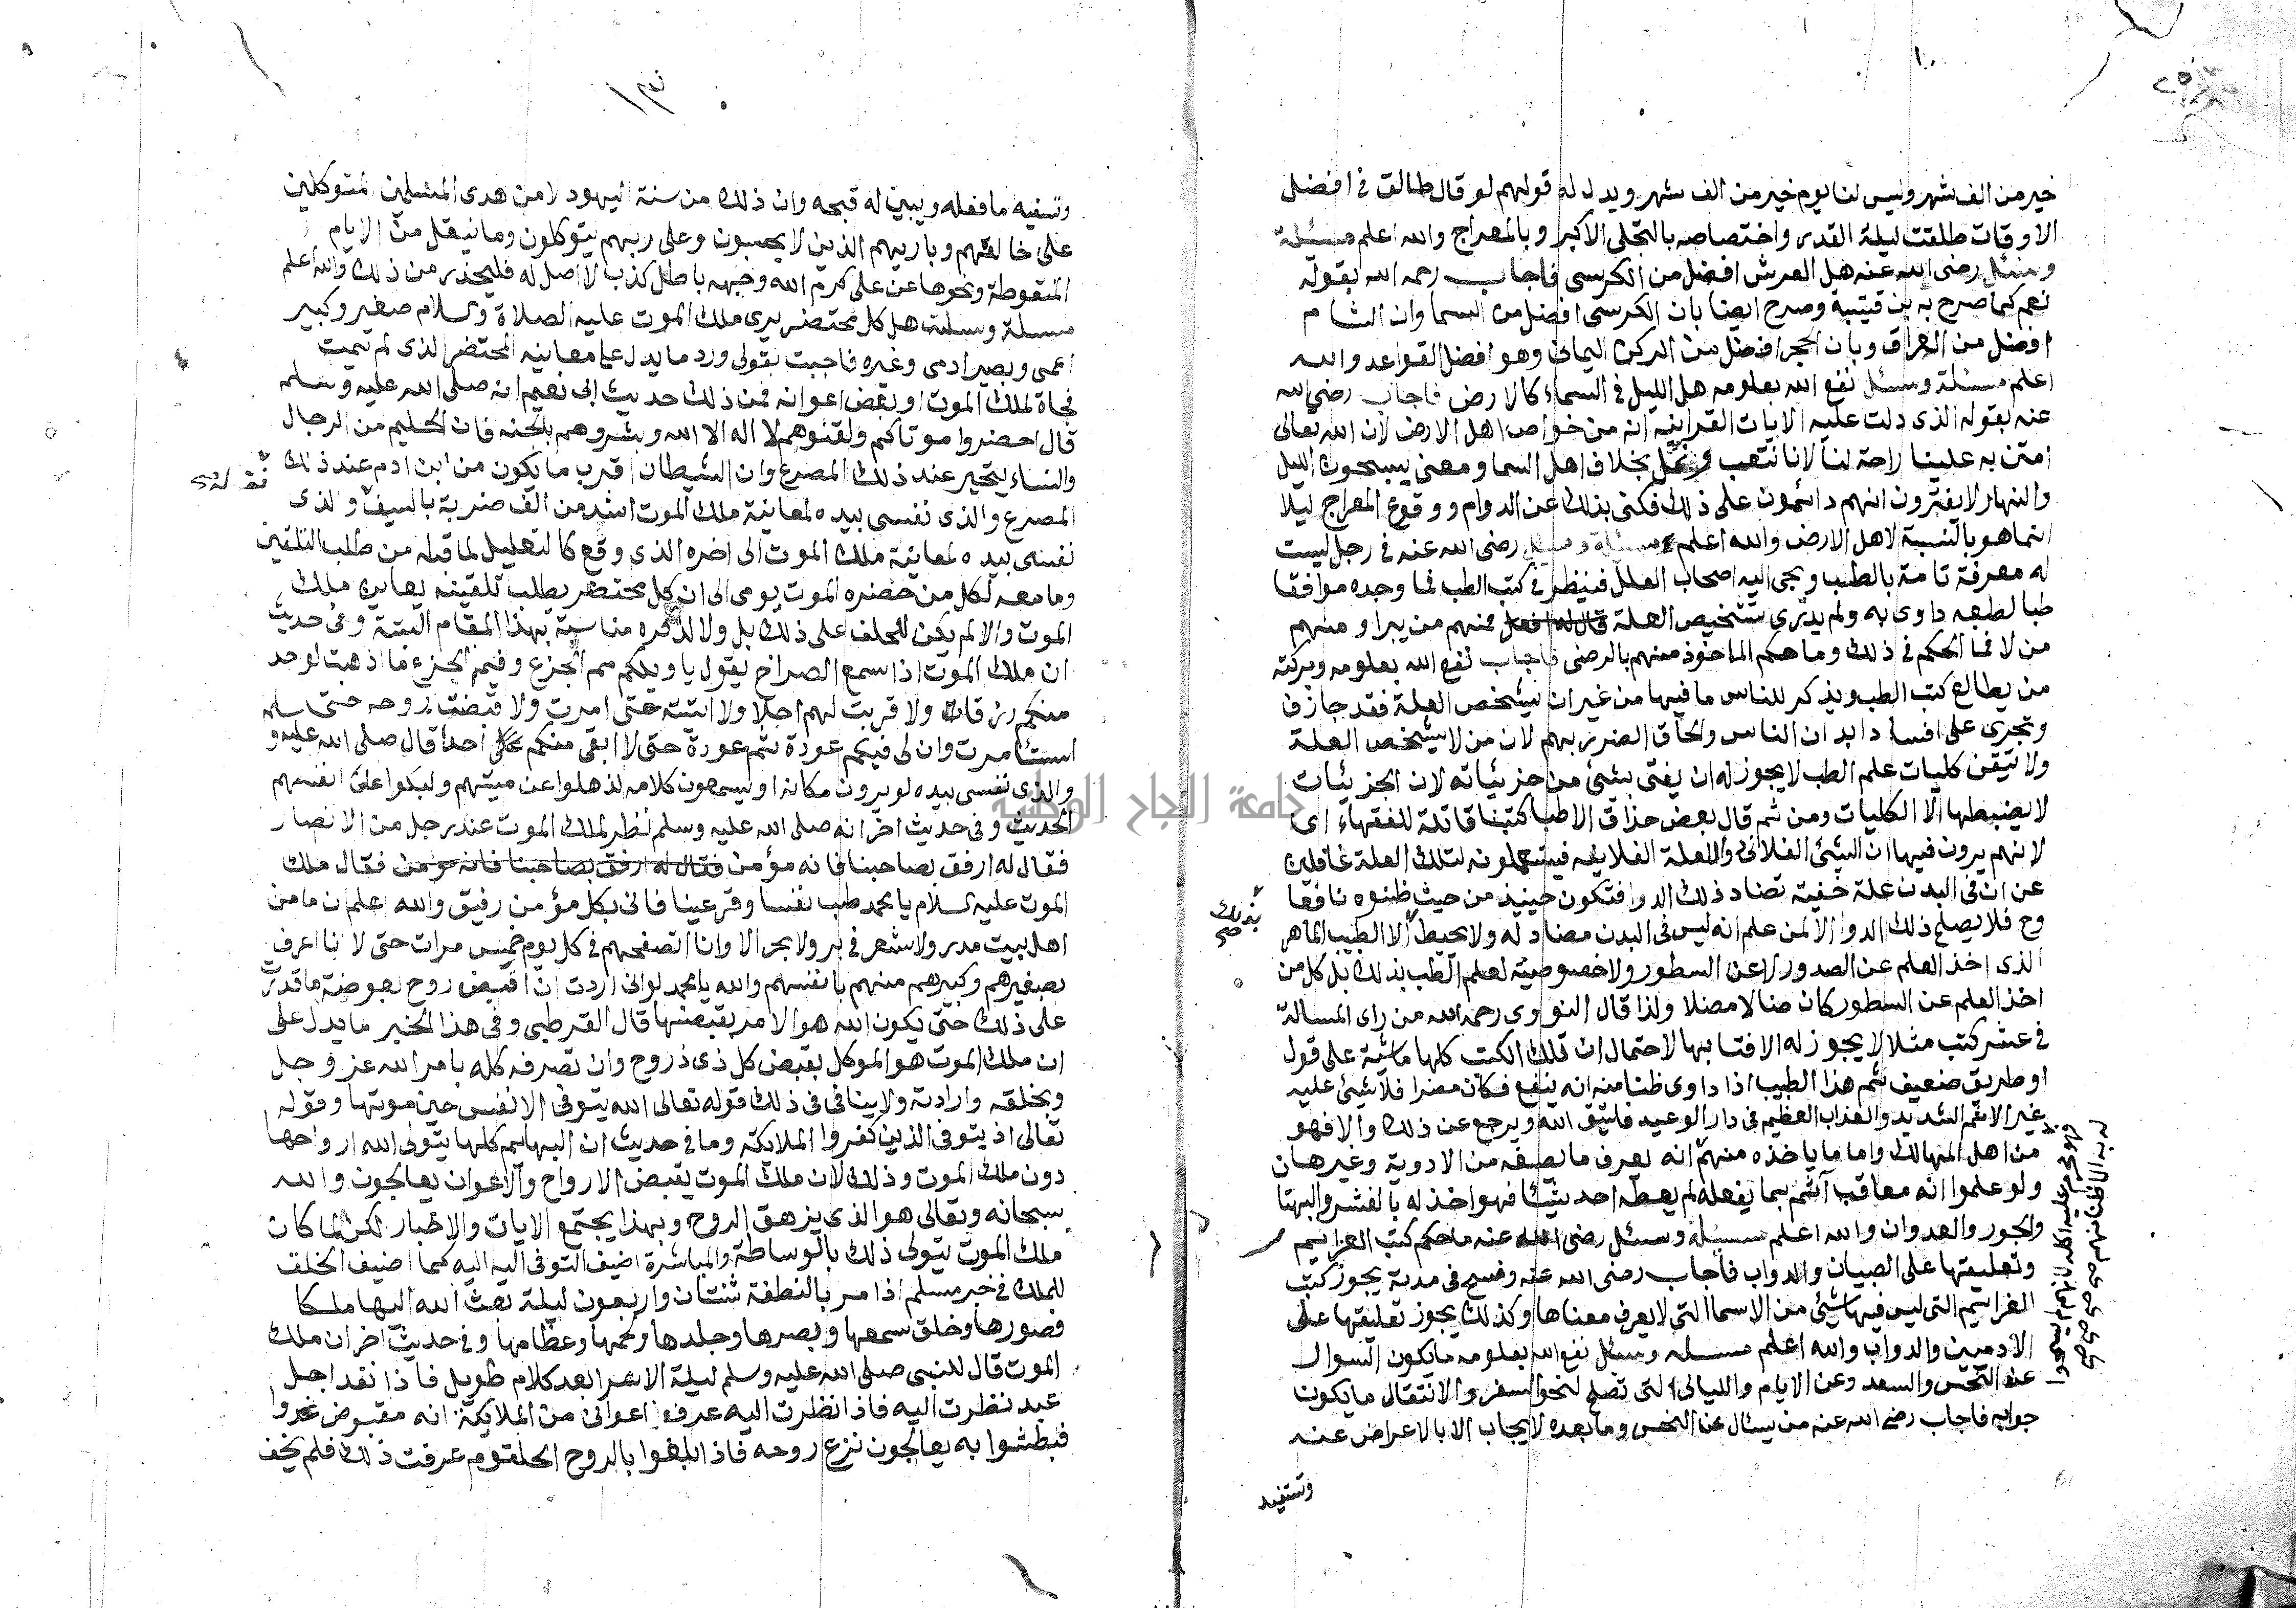 خير من الف شهر وليس لنا يوم خير من الف شهر ويدل له قولهم لو قال طالق في افضل
الاوقات طلقت ليلة القدر واختصاصه بالتجلي الاكبر وبالمعراج والله اعلم مسئلة
وسئل رضى الله عنه هل العرش افضل من الكرسى فاجاب رحمه الله بقوله
نعم كما صرح به بن قتيبة وصرح ايضا بان الكرسى افضل من السما وان الشام
افضل من العراق وبان الحجر افضل من الركن اليمانى وهو افضل القواعد والله
اعلم مسئلة وسئل نفع الله بعلومه هل الليل في السماء كالارض فاجاب رضى الله
عنه بقوله الذى دلت عليه الايات القرانية انه من خواص اهل الارض لان الله تعالى
امتن به علينا راحة لنا لانا نتعب ونمل بخلاف اهل السما ومعنى يسبحون الليل
والنهار لا يفترون انهم دائمون على ذلك فكنى بذلك عن الدوام ووقوع المعراج ليلا
انما هو بالنسبة لاهل الارض والله اعلم مسئلة وسئل رضى الله عنه في رجل ليست
له معرفة تامة بالطب ويجى اليه اصحاب العلل فينظر في كتب الطب فما وجده موافقا
طبا لطبعه داوى به ولم يدرى تشخيص العلة قال له افعل فمنهم من يبرا ومنهم
من لا فما الحكم في ذلك وما حكم الماخوذ منهم بالرضى فاجاب نفع الله بعلومه وبركته
من يطالع كتب الطب ويذكر للناس ما فيها من غير ان يشخص العلة فقد جازف
وتجرى على افساد ابدان الناس والحاق الضرر بهم لان من لا يشخص العلة
ولا تيقن كليات علم الطب لا يجوز له ان يفتى بشئ من جزئياته لان الجزئيات
لا يضبطها الا الكليات ومن ثم قال بعض حذاق الاطبا كتبنا قاتلة للفقهاء اى
لانهم يرون فيها ان الشئ الفلانى وللعلة الفلانيه فيستعملونه لتلك العلة غافلين
عن ان في البدن علة خفية تضاد ذلك الدوا فتكون حينيذ من حيث ظنوه نافعا
وح فلا يصلح ذلك الدوا الا لمن علم انه ليس في البدن مضاد له ولا يحيط الا الطبيب الماهر
بذلك صح
الذى اخذ العلم عن الصدور لا عن السطور ولا خصوصية لعلم الطب بذلك بل كل من
اخذ العلم عن السطور كان ضالا مضلا ولذا قال النووى رحمه الله من راى المسالة
في عشر كتب مثلا لا يجوز له الافتا بها لاحتمال ان تلك الكتب كلها ماشية على قول
او طريق ضعيف ثم هذا الطبيب اذا داوى ظنا منه انه ينفع فكان مضرا فلا شئ عليه
غير الاثم الشديد والعذاب العظيم في دار الوعيد فليتق الله ويرجع عن ذلك والا فهو
من اهل المهالك واما ما ياخذه منهم انه يعرف ما يصفه من الادوية وغيرها ن
ولو علموا انه معاقب آثم بما يفعله لم يعطه احد شيئا فهو اخذ له بالغش والبهتا
والجور والعدوان والله اعلم مسئلة وسئل رضى الله عنه ما حكم كتب العزايم
وتعليقها على الصبيان والدواب فاجاب رضى الله عنه وفسح في مدته يجوز كتب
العزايم التى ليس فيها شئ من الاسما التى لا يعرف معناها وكذلك يجوز تعليقها على
الادميين والدواب والله اعلم مسئلة وسئل نفع الله بعلومه ما يكون السوال
عن النحس والسعد وعن الايام والليالى التى تصلح لنحو السفر والانتقال ما يكون
جوابه فاجاب رضى الله عنه من يسئال عن النحس وما بعده لا يجاب الا بالاعراض عنه
وتسفيه
وتسفيه ما فعله ويبين له قبحه وان ذلك من سنة اليهود لا من هدى المسلمين المتوكلين
على خالقهم وباريهم الذين لا يحسبون وعلى ربهم يتوكلون وما ينقل من الايام
المنقوطة ونحوها عن على كرم الله وجهه باطل كذب لا اصل له فليحذر من ذلك والله اعلم
مسئلة وسئلت هل كل محتضر يرى ملك الموت عليه الصلاة والسلام صغير وكبير
اعمى وبصير ادمى وغيره فاجبت بقولى ورد ما يدل على معاينه المحتضر الذى لم يمت
فجاة لملك الموت او بعض اعوانه فمن ذلك حديث ابى نعيم انه صلى الله عليه وسلم
قال احضروا موتاكم ولقنوهم لا اله الا الله وبشروهم بالجنه فان الحليم من الرجال
والنساء يتحير عند ذلك المصرع وان الشيطان اقرب ما يكون من ابن ادم عند ذلك
المصرع والذى نفسى بيده لمعاينة ملك الموت اشد من الف ضربة بالسيف والذى
نفسى بيده لمعاينة ملك الموت الى اخره الذى وقع كالتعليل لما قبله من طلب التلقين
وما معه لكل من حضره الموت يومى الى ان كل محتضر يطلب تلقينه يعاين ملك
الموت والا لم يكن للحلف على ذلك بل ولا لذكره مناسبة بهذا المقام البتة وفي حديث
ان ملك الموت اذا سمع الصراخ يقول يا ويلكم مم الجزع وفيم الجزع ما اذهبت لوحد
منكم رزقا ولا قربت لهم اجلا ولا اتيته حتى امرت ولا قبضت روحه حتى
استامرت وان لى فيكم عودة ثم عودة حتى لا ابقى منكم احدا قال صلى الله عليه وسلم
والذى نفسى بيده لو يرون مكانه او يسمعون كلامه لذهلوا عن ميتهم ولبكوا على انفسهم
الحديث وفي حديث اخر انه صلى الله عليه وسلم نظر لملك الموت عند رجل من الانصار
فقال له ارفق بصاحبنا فانه مؤمن فقال له ارفق بصاحبنا فانه مومن فقال ملك
الموت عليه السلام يا محمد طب نفسا وقر عينا فانى بكل مؤمن رفيق والله اعلم ان ما من
اهل بيت مدر ولا شعر في بر ولا بحر الا وانا اتصفحهم في كل يوم خمس مرات حتى لانا اعرف
بصغيرهم وكبيرهم منهم بانفسهم والله يا محمد لو انى اردت ان اقبض روح بعوضة ما قدرت
على ذلك حتى يكون الله هو الامر بقبضها قال القرطبى وفي هذا الخبر ما يدل على
ان ملك الموت هو الموكل بقبض كل ذى ذروح وان تصرفه كله بامر الله عز وجل
وبخلقه وارادته ولا ينافى في ذلك قوله تعالى الله يتوفى الانفس حين موتها وقوله
تعالى اذ يتوفى الذين كفروا الملايكة وما في حديث ان البهايم كلها يتولى الله ارواحها
دون ملك الموت وذلك لان ملك الموت يقبض الارواح والاعوان يعالجون والله
سبحانه وتعالى هو الذى يزهق الروح وبهذا يجتمع الايات والاخبار لكن لما كان
ملك الموت يتولى ذلك بالوساطة والمباشرة اضيف التوفى اليه اليه كما اضيف الخلق
للملك في خبر مسلم اذا مر بالنطفة ثنتان واربعون ليلة بعث الله اليها ملكا
فصورها وخلق سمعها وبصرها وجلدها ولحمها وعظامها وفي حديث اخر ان ملك
الموت قال للنبى صلى الله عليه وسلم ليلة الاسرا بعد كلام طويل فاذا نفد اجل
عبد نظرت اليه فاذا نظرت اليه عرف اعوانى من الملايكة انه مقبوض غدوا
فبطشوا به يعالجون نزع روحه فاذا بلغوا بالروح الحلقوم عرفت ذلك فلم يخف
جامعة النجاح الوطنية